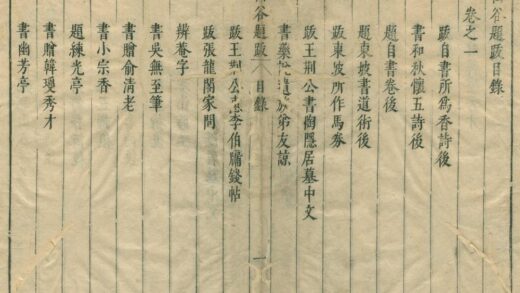 谷題跋目錄
卷之一
跋自書所爲香詩後
書和秋懷五詩後
題自書卷後
題東坡書道術後
跋東坡所作馬券
跋王荊公書陶隱居墓中文
書藥說遺族弟友諒
谷題跋 目錄 一
跋王荊公惠李伯牖錢帖
跋張龍閣家問
辨養字
書吳無至筆
書贈俞清老
書小宗香
題練光亭
書贈韓瓊秀才
書幽芳亭